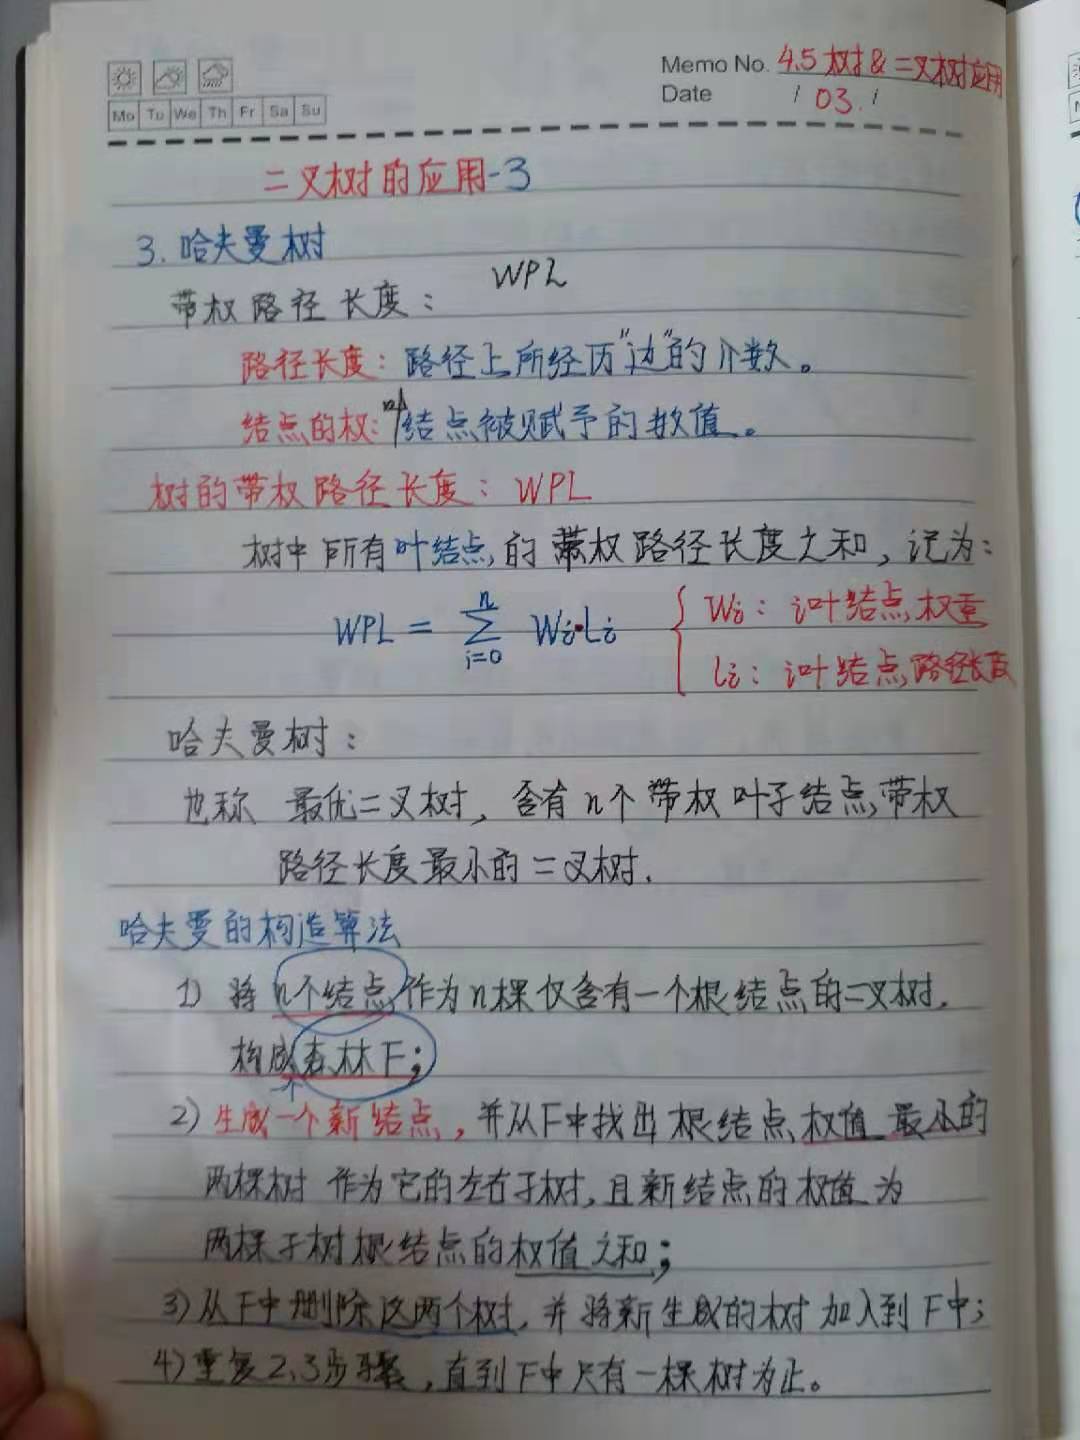 Memo No. 4.5 树 & 二叉树应用
Date / 03. /
Mo Tu We Th Fr Sa Su
二叉树的应用-3
3. 哈夫曼树
WPL
带权路径长度：
路径长度：路径上所经历"边"的个数。
结点的权：结点被赋予的数值。
树的带权路径长度：WPL
树中所有叶结点的带权路径长度之和，记为：
WPL = \sum_{i=0}^{n} Wi·Li { Wi：i叶结点权重
Li：i叶结点路径长度
哈夫曼树：
也称 最优二叉树，含有n个带权叶子结点带权
路径长度最小的二叉树.
哈夫曼的构造算法
1) 将n个结点作为n棵仅含有一个根结点的二叉树.
构成森林F；
2) 生成一个新结点，并从F中找出根结点权值最小的
两棵树作为它的左右子树，且新结点的权值为
两棵子树根结点的权值之和；
3) 从F中删除这两个树，并将新生成的树加入到F中；
4) 重复2、3步骤，直到F中只有一棵树为止。